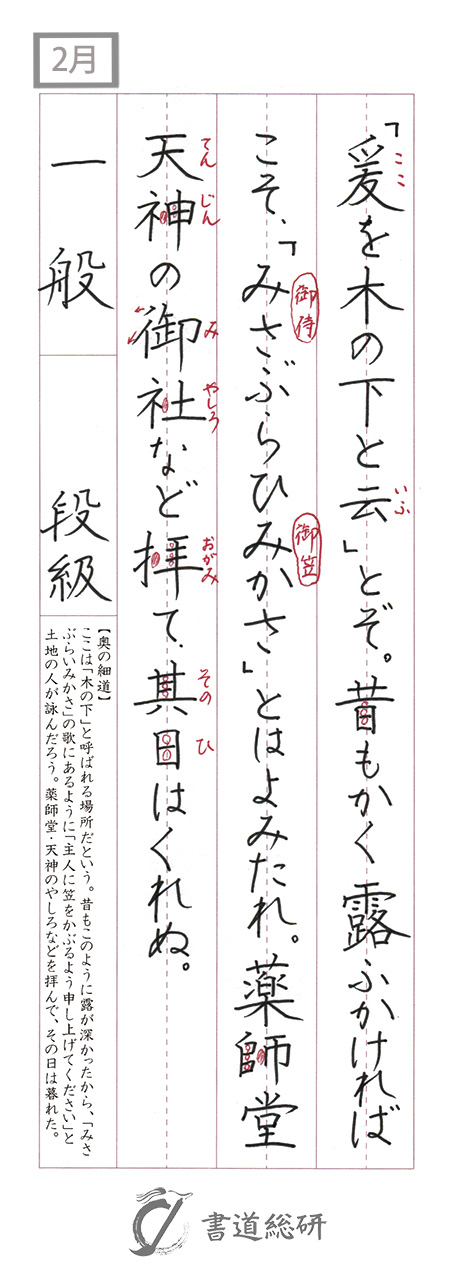 2月
「爰を木の下と云」とぞ。昔もかく露ふかければ
ここ
いふ
こそ、「みさぶらひみかさ」とはよみたれ。薬師堂
御侍
御笠
天神の御社など拝て、其日はくれぬ。
てん じん
み やしろ
おがみ
その ひ
一般
段級
【奥の細道】
ここは「木の下」と呼ばれる場所だという。昔もこのように露が深かったから、「みさ
ぶらいみかさ」の歌にあるように「主人に笠をかぶるよう申し上げてください」と
土地の人が詠んだろう。薬師堂・天神のやしろなどを拝んで、その日は暮れた。
書道総研